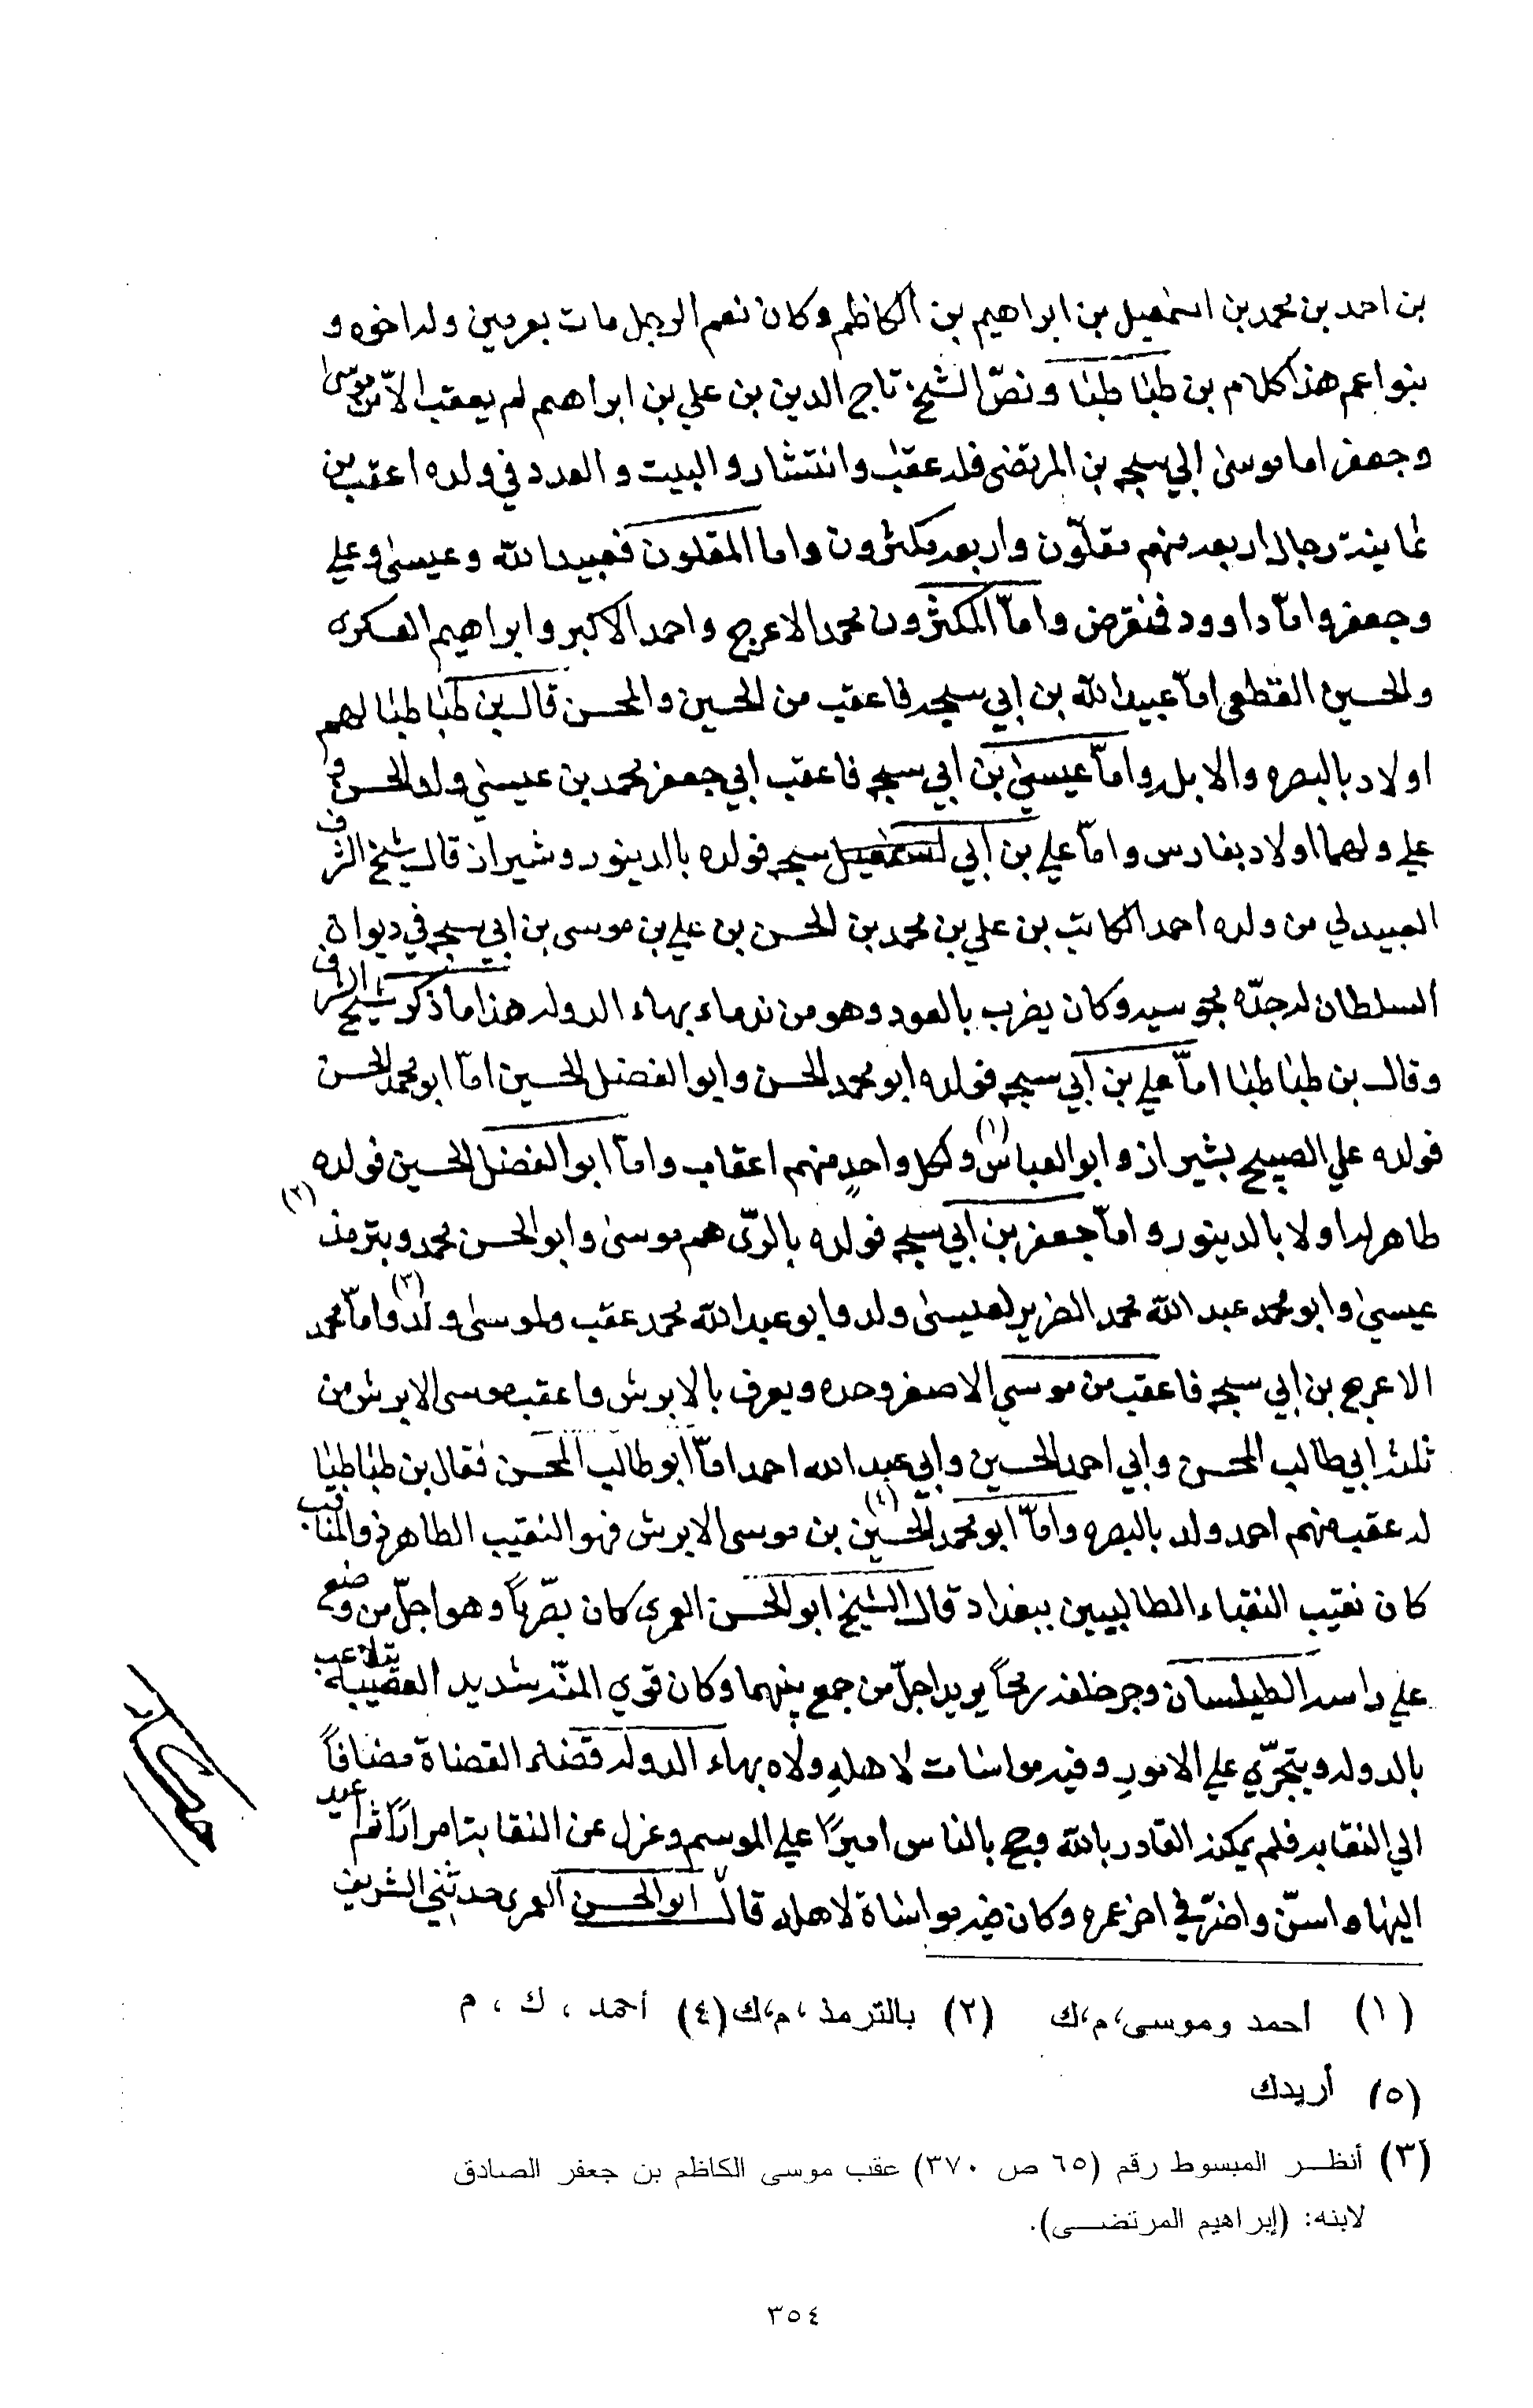 بن احمد بن محمد بن اسمعيل بن ابراهيم بن الكاظم وكان نعم الرجل مات بعرمين وله اخوه و
بنوا عم هذا كلام بن طبا طبا ونصّ الشيخ تاج الدين بن علي بن ابراهيم لم يعقب الا من موسى
وجعفر اما موسى ابي سبحه بن المرتضى فله عقب وانتشار والبيت والعدد في ولده اعقب من
ثمانية رجال اربعه منهم مقلّون واربعه مكثرون واما المقلون فعبيد الله وعيسى وعلي
وجعفر واماّ داوود فنقرض واماّ المكثرون محمد الاعرج واحمد الاكبر وابراهيم العسكرى
والحسين القطعي اماّ عبيد الله بن ابي سبحه فاعقب من الحسين والمحسن قال بن طبا طبا لهم
اولاد بالبصره والابله واماّ عيسى بن ابي سبحه فاعقب ابي جعفر محمد بن عيسى ولد الحسن و
علي ولهما اولاد بفارس واماّ علي بن ابي اسمعيل سبحه فولده بالدينور وشيراز قال شيخ الشرف
العبيدلي من ولده احمد الكاتب بن علي بن محمد بن الحسن بن علي بن موسى بن ابي سبحه في ديوان
السلطان له جدّه وكان يضرب بالعود وهو من ندماء بهاء الدوله هذا ما ذكره شيخ الشرف
وقال بن طبا طبا اماّ علي بن ابي سبحه فولده ابو محمد الحسن وابو الفضل الحسين اماّ ابو محمد الحسن
فولده علي الصبيح بشيراز وابو العباس (١) ولكل واحدٍ منهم اعقاب واماّ ابو الفضل الحسين فولده
طاهر له اولا بالدينور واماّ جعفر بن ابي سبحه فولده بالرّى هم موسى وابو الحسن محمد وبترمذ (٢)
عيسى وابو محمد عبد الله محمد الضرير لعيسى ولد وابو عبد الله محمد عقب ولموسى ولد (٣) واماّ محمد
الاعرج بن ابي سبحه فاعقب من موسى الاصغر وحده ويعرف بالابرش واعقب موسى الابرش من
ثلثه ابي طالب المحسن وابي احمد الحسين وابي عبد الله احمد اماّ ابو طالب المحسن فقال بن طبا طبا
له عقب منهم احمد ولد بالبصره واماّ ابو محمد الحسين (٤) بن موسى الابرش فهو النقيب الطاهر ذو المناقب
كان نقيب النقباء الطالبيين ببغداد قال الشيخ ابو الحسن العمرى كان بصّرياً وهو اجلّ من وضع
علي راسه الطيلسان وجر خلفه رمحاً يريد اجلّ من جمع بينهما وكان قوي المنّه شديد العصبيه يتلاعب
بالدوله ويتجرّي علي الامورِ وفيه مواسات لاهلهِ ولاه بهاء الدوله قضاء القضاة مضافاً
الي النقابه فلم يمكنه القادر بالله وحج بالناس اميرًا علي الموسم وعزل عن النقابه مراراً ثم اعيد
اليها واسنّ واضرّ في اخر عمره وكان فيه مواساة لاهله قال ابو الحسن العمرى حدثني الشريف
(١) أحمد وموسى، م، ك (٢) بالترمذ، م، ك (٤) أحمد ، ك ، م
(٥) أريدك
(٣) أنظر المبسوط رقم (٦٥ ص ٣٧٠) عقب موسى الكاظم بن جعفر الصادق
لابنه: (إبراهيم المرتضى).
٣٥٤